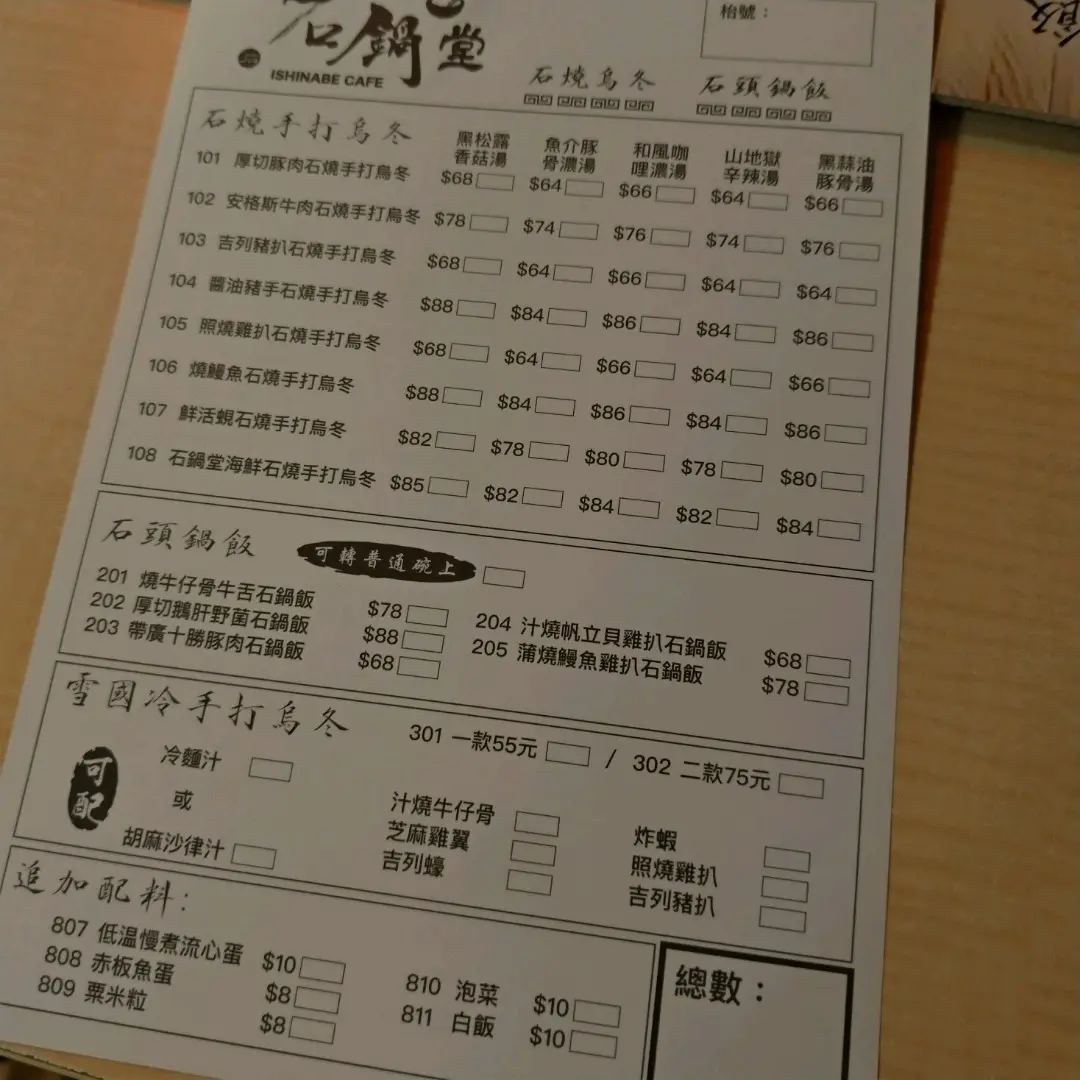 石鍋堂
ISHINABE CAFE
枱號：
石燒烏冬 石頭鍋飯
石燒手打烏冬
黑松露香菇湯 魚介豚骨濃湯 和風咖哩濃湯 山地獄辛辣湯 黑蒜油豚骨湯
101 厚切豚肉石燒手打烏冬 $68 $64 $66 $64 $66
102 安格斯牛肉石燒手打烏冬 $78 $74 $76 $74 $76
103 吉列豬扒石燒手打烏冬 $68 $64 $66 $64 $64
104 醬油豬手石燒手打烏冬 $88 $84 $86 $84 $86
105 照燒雞扒石燒手打烏冬 $68 $64 $66 $64 $66
106 燒鰻魚石燒手打烏冬 $88 $84 $86 $84 $86
107 鮮活蜆石燒手打烏冬 $82 $78 $80 $78 $80
108 石鍋堂海鮮石燒手打烏冬 $85 $82 $84 $82 $84
石頭鍋飯 可轉普通碗上
201 燒牛仔骨牛舌石鍋飯 $78
202 厚切鵝肝野菌石鍋飯 $88
203 帶廣十勝豚肉石鍋飯 $68
204 汁燒帆立貝雞扒石鍋飯 $68
205 蒲燒鰻魚雞扒石鍋飯 $78
雪國冷手打烏冬 301 一款55元 / 302 二款75元
可配
冷麵汁
或
胡麻沙律汁
汁燒牛仔骨
芝麻雞翼
吉列蠔
炸蝦
照燒雞扒
吉列豬扒
追加配料:
807 低温慢煮流心蛋 $10
808 赤板魚蛋 $8
809 粟米粒 $8
810 泡菜 $10
811 白飯 $10
總數：